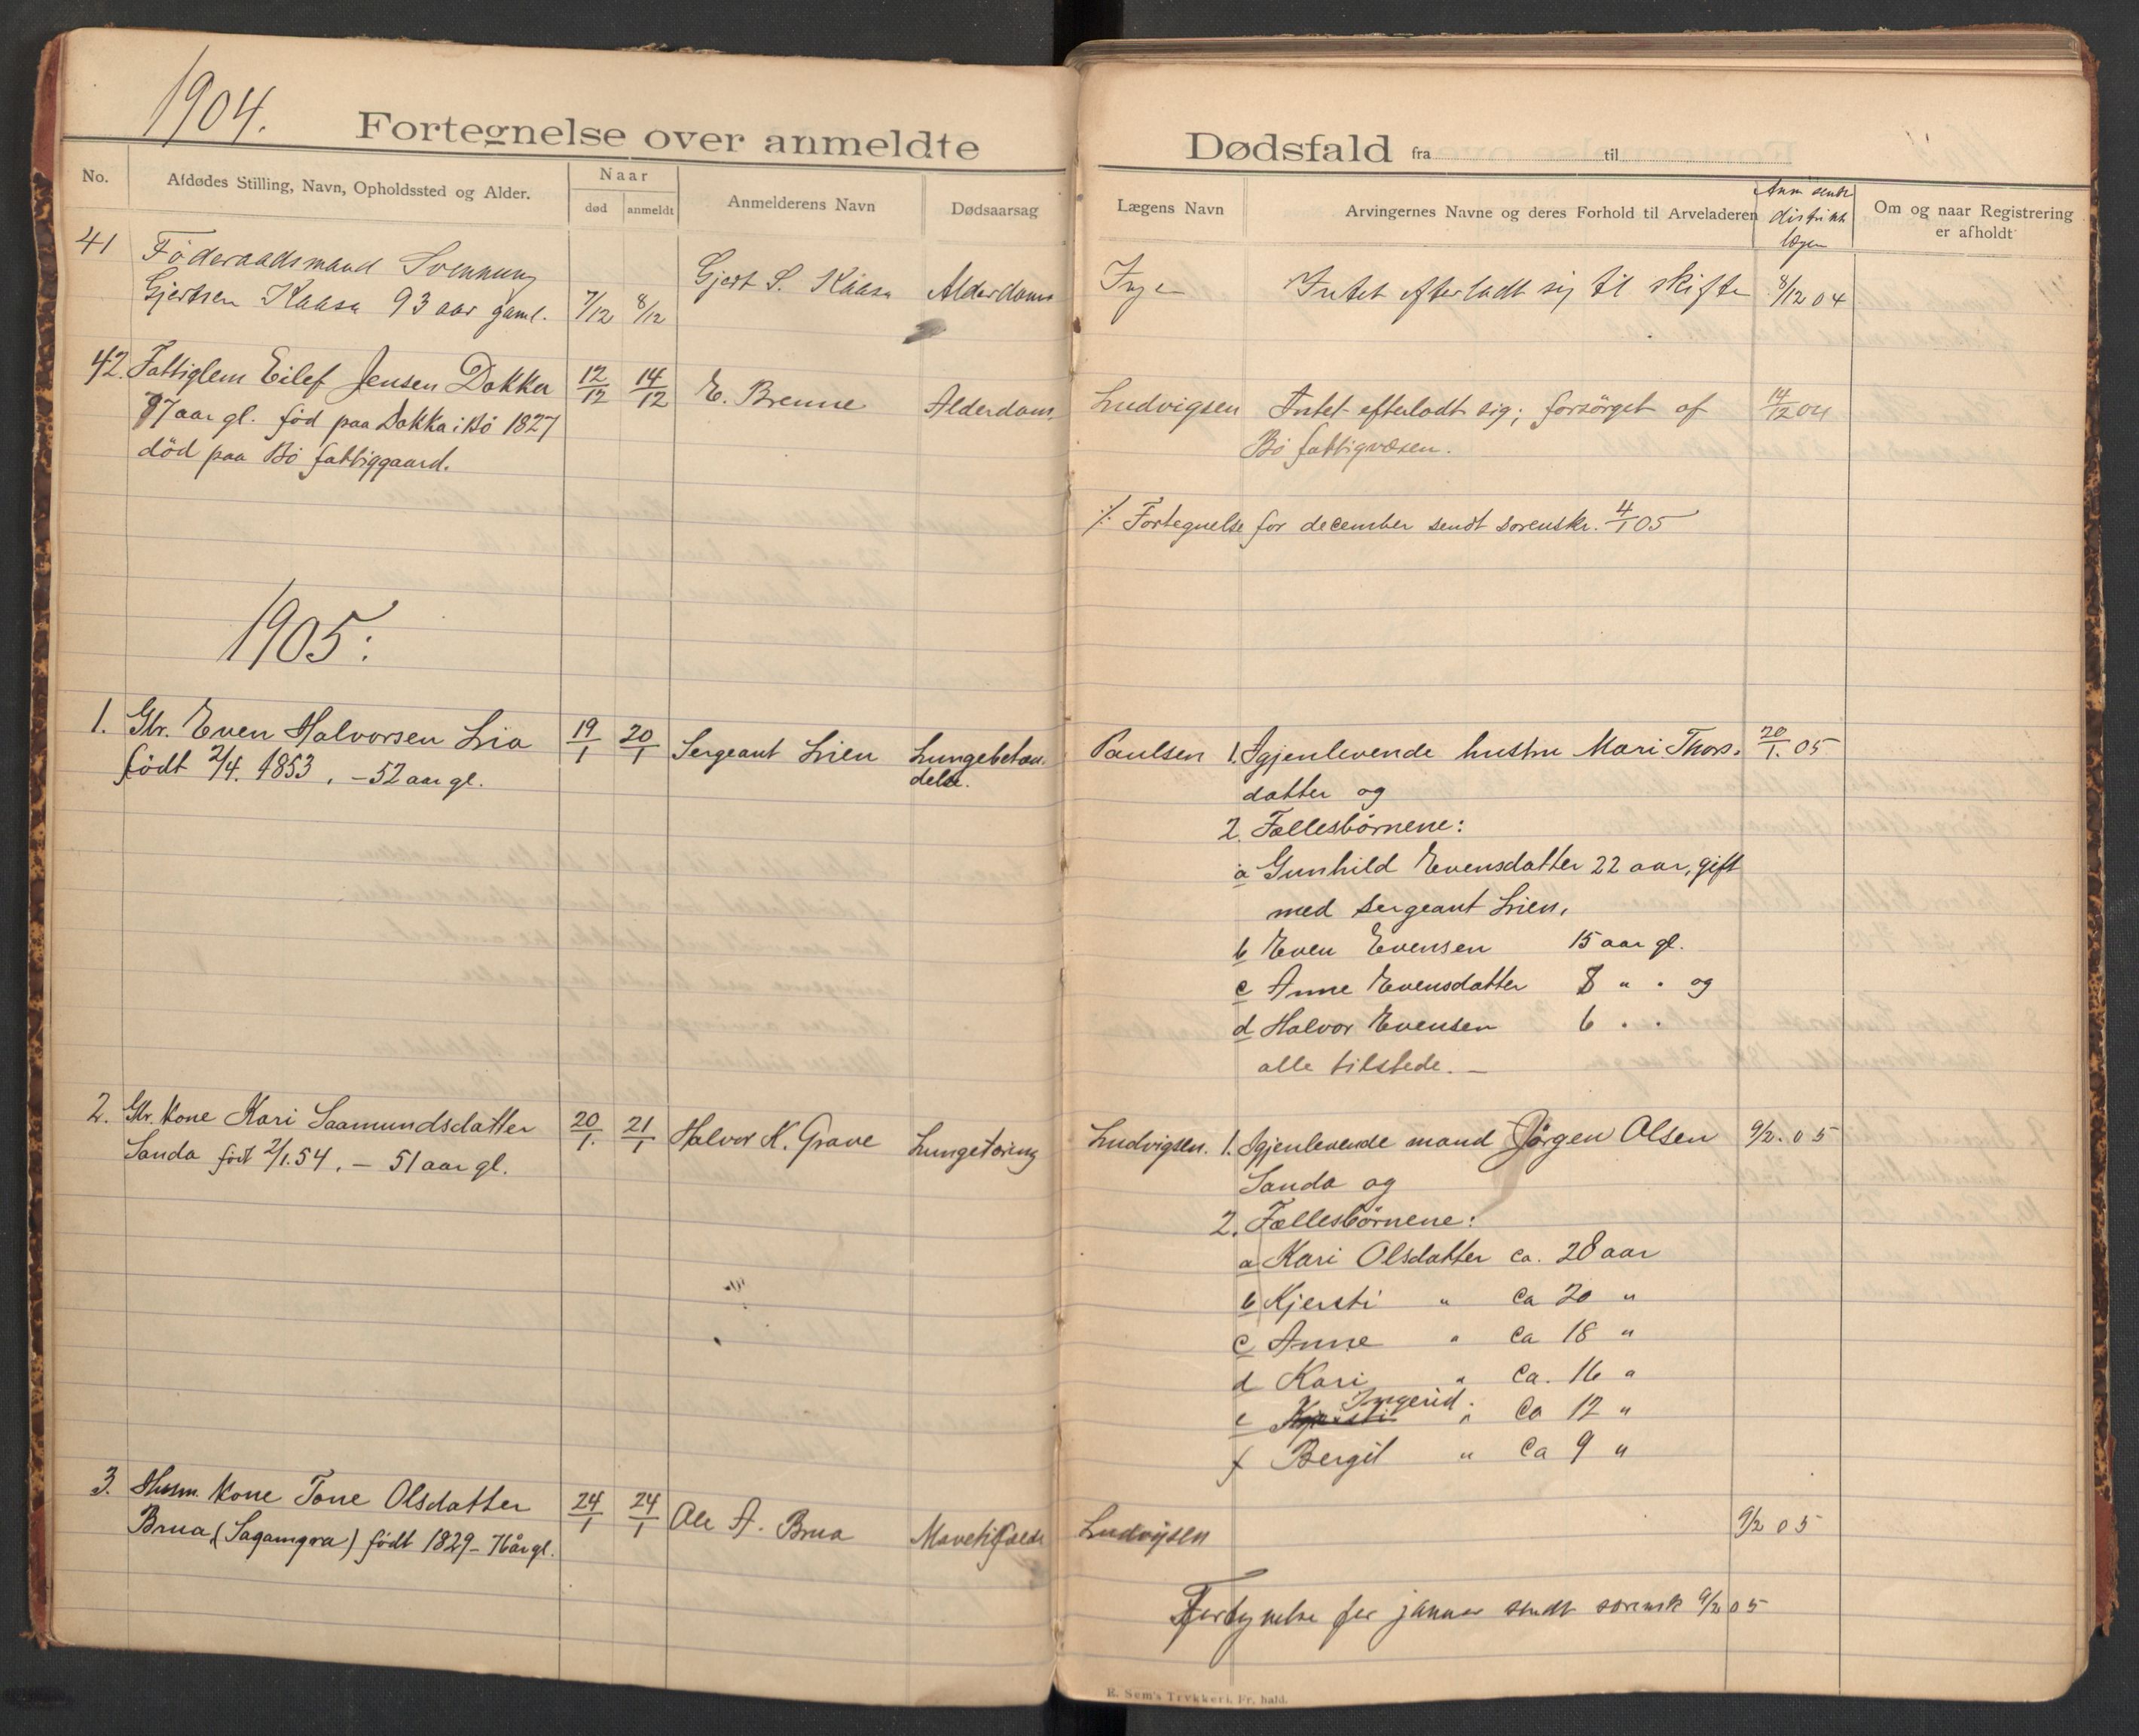 1904.
Fortegnelse over anmeldte
No.
Afdødes Stilling, Navn, Opholdssted og Alder.
Naar
død
anmeldt
Anmelderens Navn
Dødsaarsag
41
Föderaadsmand Svennung
Gjertsen Kaasa 93 aar gaml.
7/12
8/12
Gjert S. Kaasa
Alderdoms
42. Fattiglem Eilef Jensen Dokka
77 aar gl. född paa Dokka i Bö 1827
död paa Bö fattiggaard.
12/12
14/12
E. Brenne
Alderdom.
1905:
1. Gbr. Even Halvorsen Lia
födt 2/4. 1853, - 52 aar gl.
19/1
20/1
Sergeant Lien
Lungebetæn-
delse.
2. Gbr. Kone Kari Saamundsdatter
Sanda födt 2/1.54, - 51 aar gl.
20/1.
21/1
Halvor K. Grave
Lungetæring
3. Husm. Kone Tone Olsdatter
Brua, (Sagamgra) födt 1829 - 76 år gl.
24/1
24/1
Ole A. Brua
Dødsfald fra til
Lægens Navn
Arvingernes Navne og deres Forhold til Arveladeren
Anm sendt
distrikts
lægen
Om og naar Registrering
er afholdt
Inge
Intet efterladt sig til skifte
8/12 04
Ludvigsen
Intet efterladt sig; forsörget af
Bö fattigvæsen.
14/12 04
./. Fortegnelse for december sendt sorenskr. 4/1 05
Paulsen
1. Igjenlevende hustru Mari Thors-
datter og
20/1. 05
2. Fællesbörnene:
a Gunhild Evensdatter 22 aar, gift
med sergeant Lien,
b Even Evensen 15 aar gl.
c Anne Evensdatter 8 " . og
d Halvor Evensen 6 . .
alle tilstede. -
Ludvigsen.
1. Igjenlevende mand Jörgen Olsen
Sanda og
9/2. 05
2. Fællesbörnene:
a Kari Olsdatter ca. 28 aar
b Kjersti " ca 20 "
c Anne " ca 18 "
d Kari " ca. 16 "
Ingerid.
e Kjersti " ca 12 "
f Bergit " ca 9 "
Ludvigsen
9/2 05
Fortegnelse for januar sendt sorensk 9/2 05
R. Sem's Trykkeri, Fr. hald.